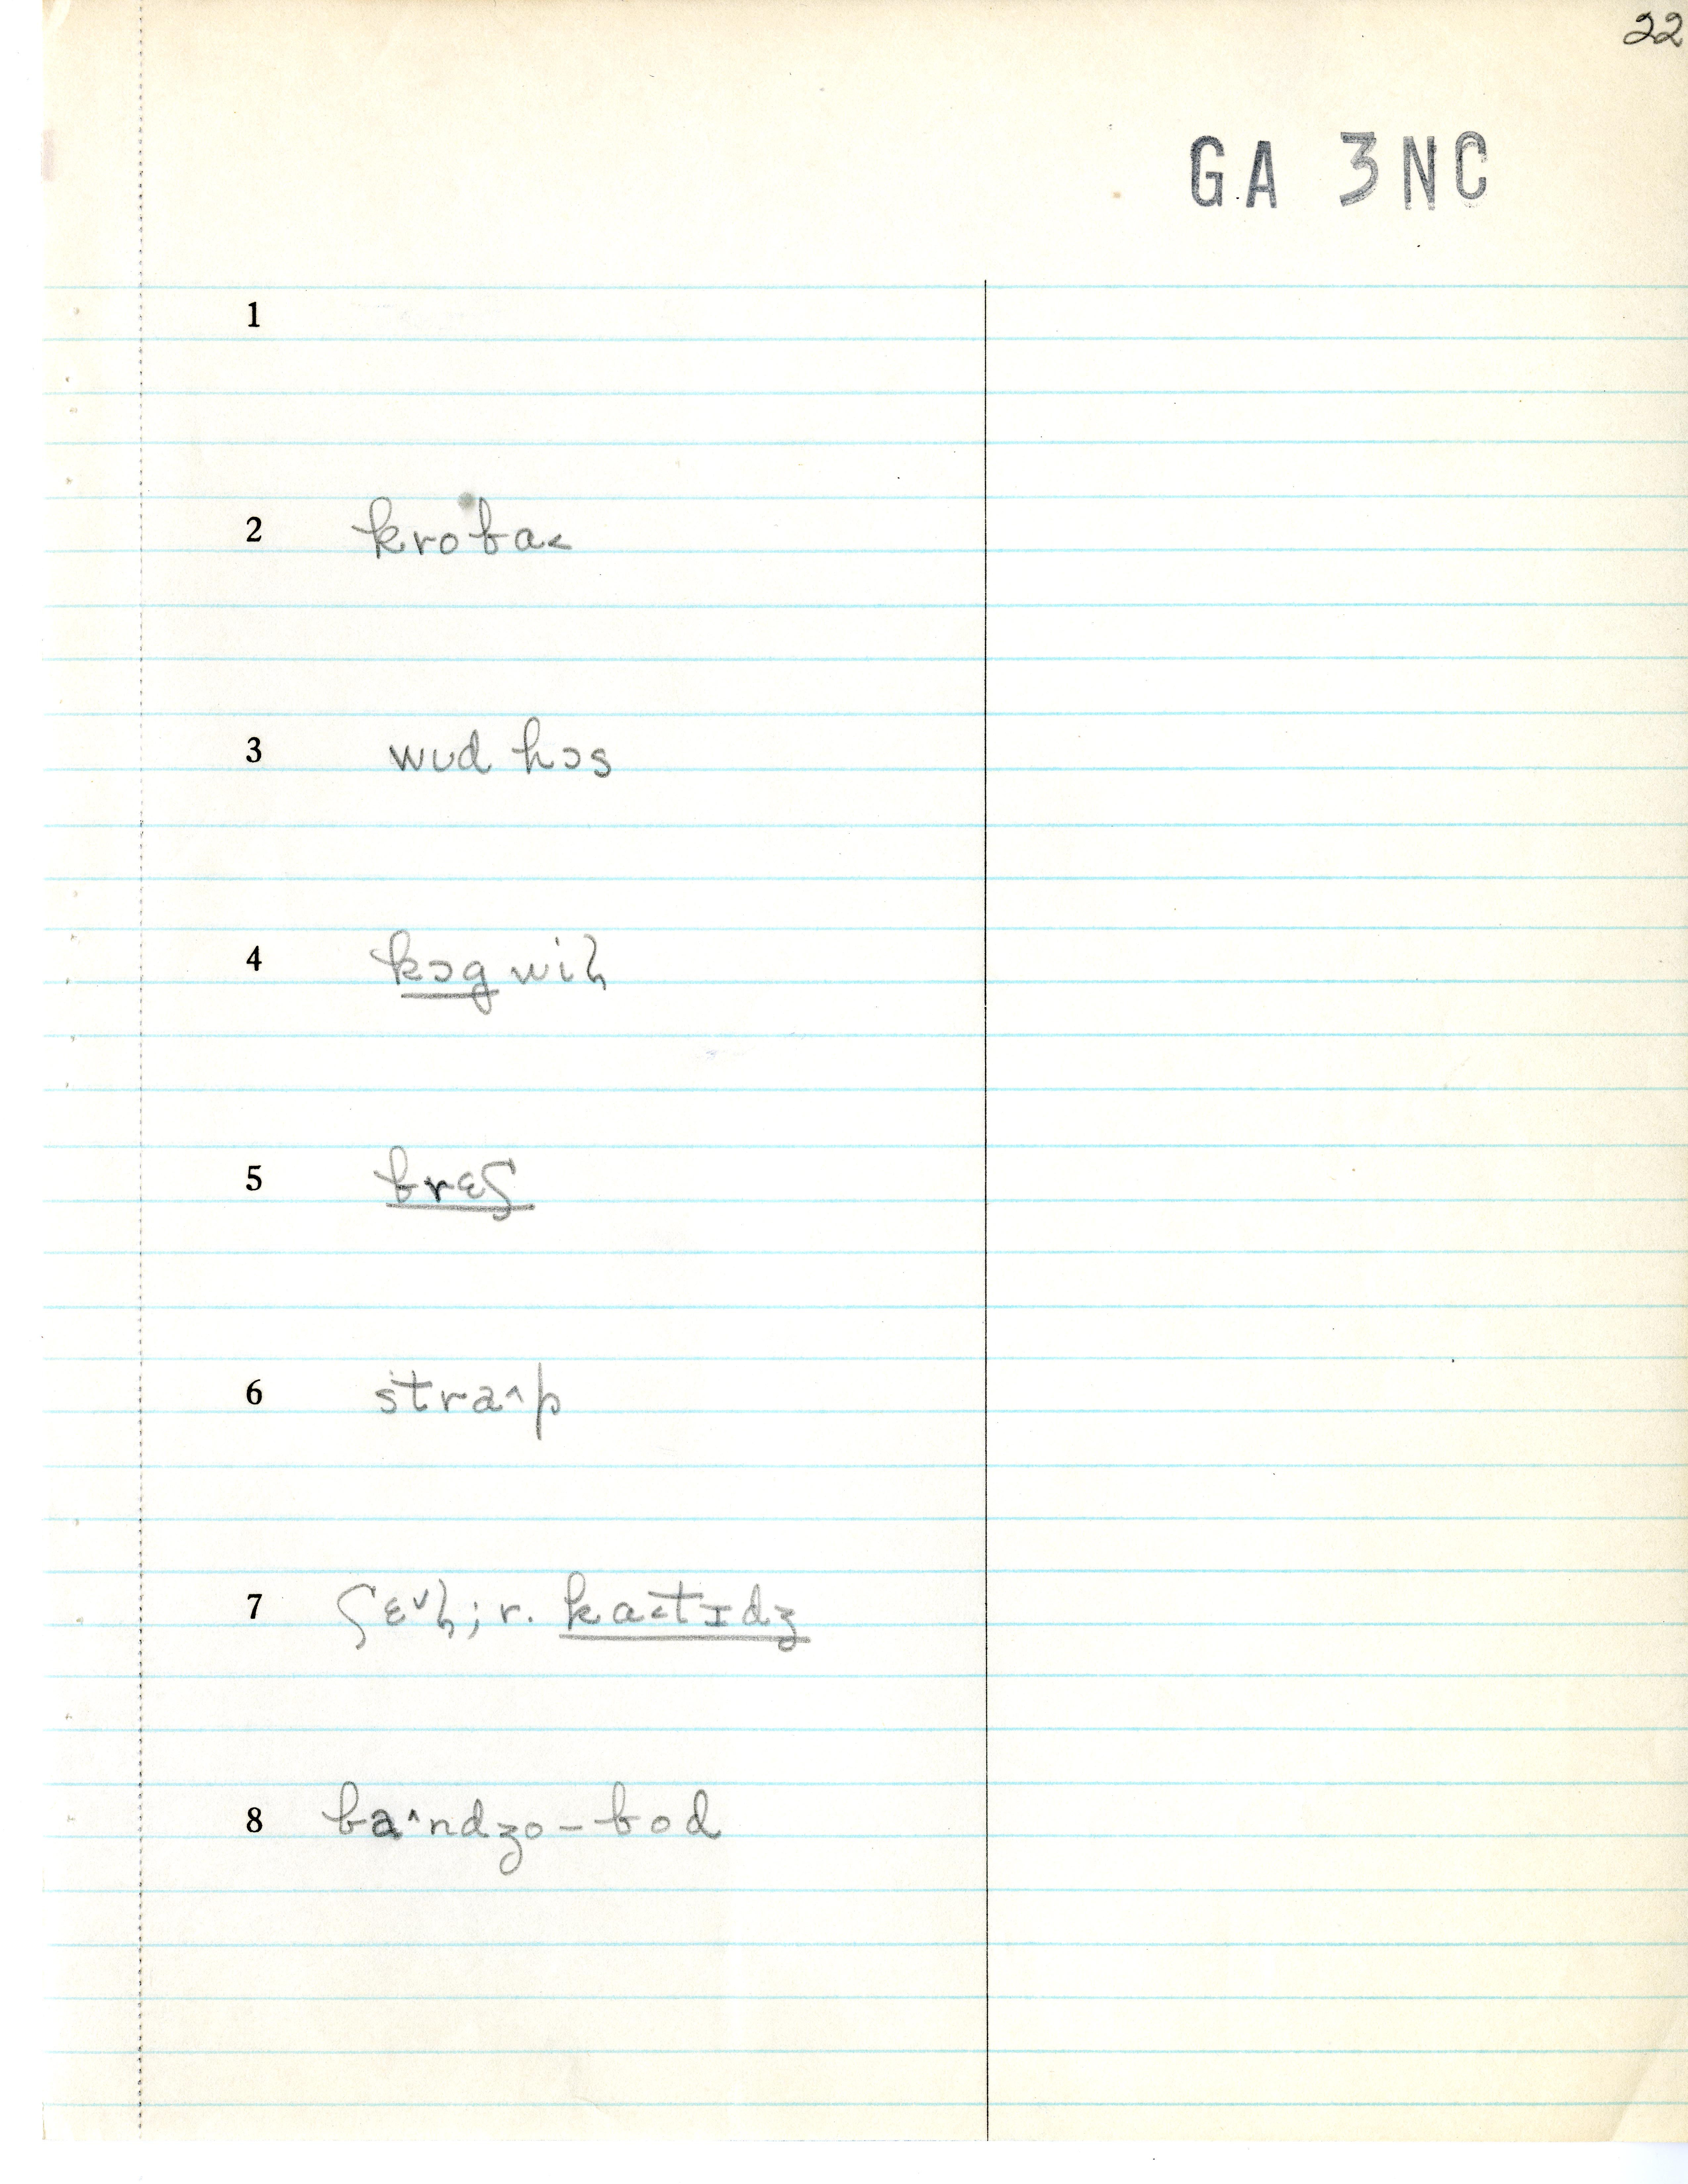 22
GA 3NC
1
2 kroba˂
3 wud hɔs
4 kɔg wiɫ
5 brɛʃ
6 stra˄p
7 ʃɛ˅ɫ; r. ka˂tɪdʒ
8 ba˄ndʒo-bod